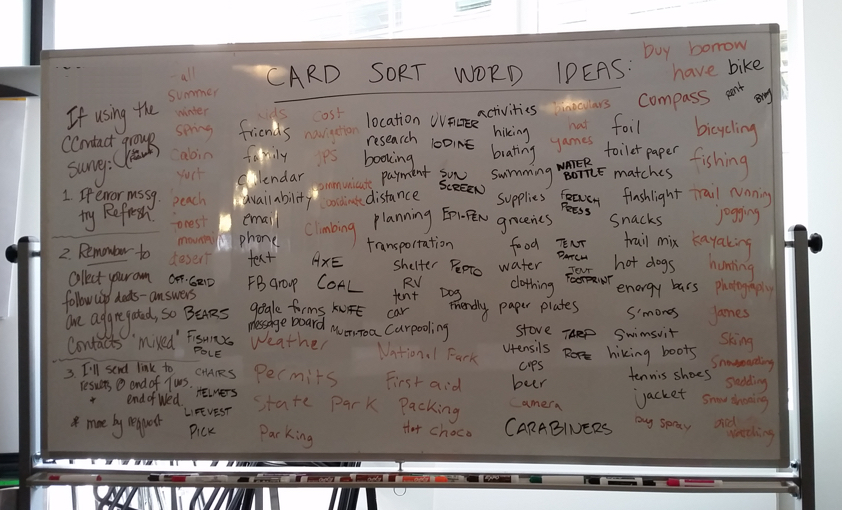 CARD SORT WORD IDEAS:
If using the
CContact group
survey:
1. If error mssg.
try Refresh
2. Remember to
Collect your own
follow up deets - answers
are aggregated, so
Contacts "mixed"
3. I'll send link to
results @ end of Tues.
+ end of Wed.
* more by request
- all
summer
winter
spring
cabin
yurt
beach
forest
mountain
desert
OFF-GRID
BEARS
FISHING
POLE
CHAIRS
HELMETS
LIFEVEST
PICK
kids
friends
family
calendar
availability
email
phone
text
FB group
google forms
message board
Weather
Permits
State Park
Parking
cost
navigation
GPS
communicate
coordinate
Climbing
AXE
COAL
KNIFE
MULTI-TOOL
location
research
booking
payment
distance
planning
transportation
shelter
RV
tent
car
Carpooling
National Park
First aid
Packing
Hot Choco
UV FILTER
IODINE
SUN
SCREEN
EPI-PEN
PEPTO
Dog
Friendly
activities
hiking
boating
swimming
supplies
groceries
food
water
clothing
paper plates
stove
utensils
cups
beer
Camera
CARABINERS
binoculars
hat
games
WATER
BOTTLE
FRENCH
PRESS
TENT
PATCH
TENT
FOOTPRINT
TARP
ROPE
foil
toilet paper
matches
flashlight
snacks
trail mix
hot dogs
energy bars
s'mores
swimsuit
hiking boots
tennis shoes
jacket
bug spray
buy borrow
have bike
rent
compass
bicycling
fishing
trail running
jogging
kayaking
hunting
photography
games
skiing
Snowboarding
sledding
snow shoeing
bird
watching